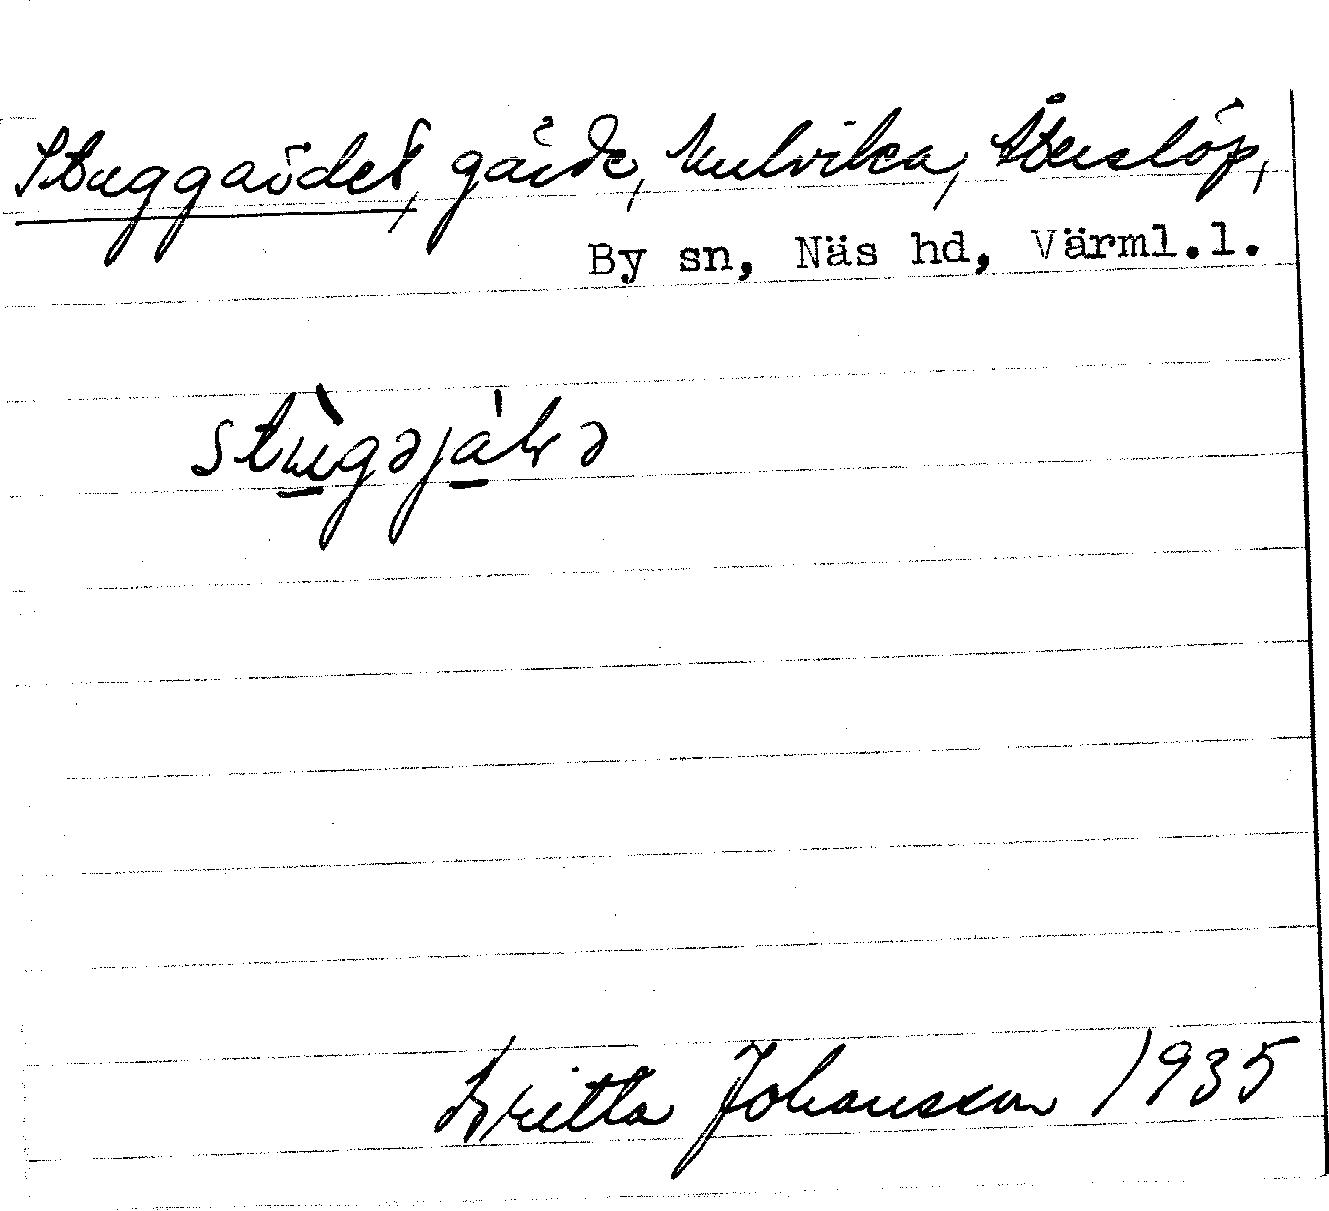 Stuggärdet, gärde, Mulvika, Återlöp,
By sn, Näs hd, Värml.l.
stùgəjálə
Britta Johansson 1935